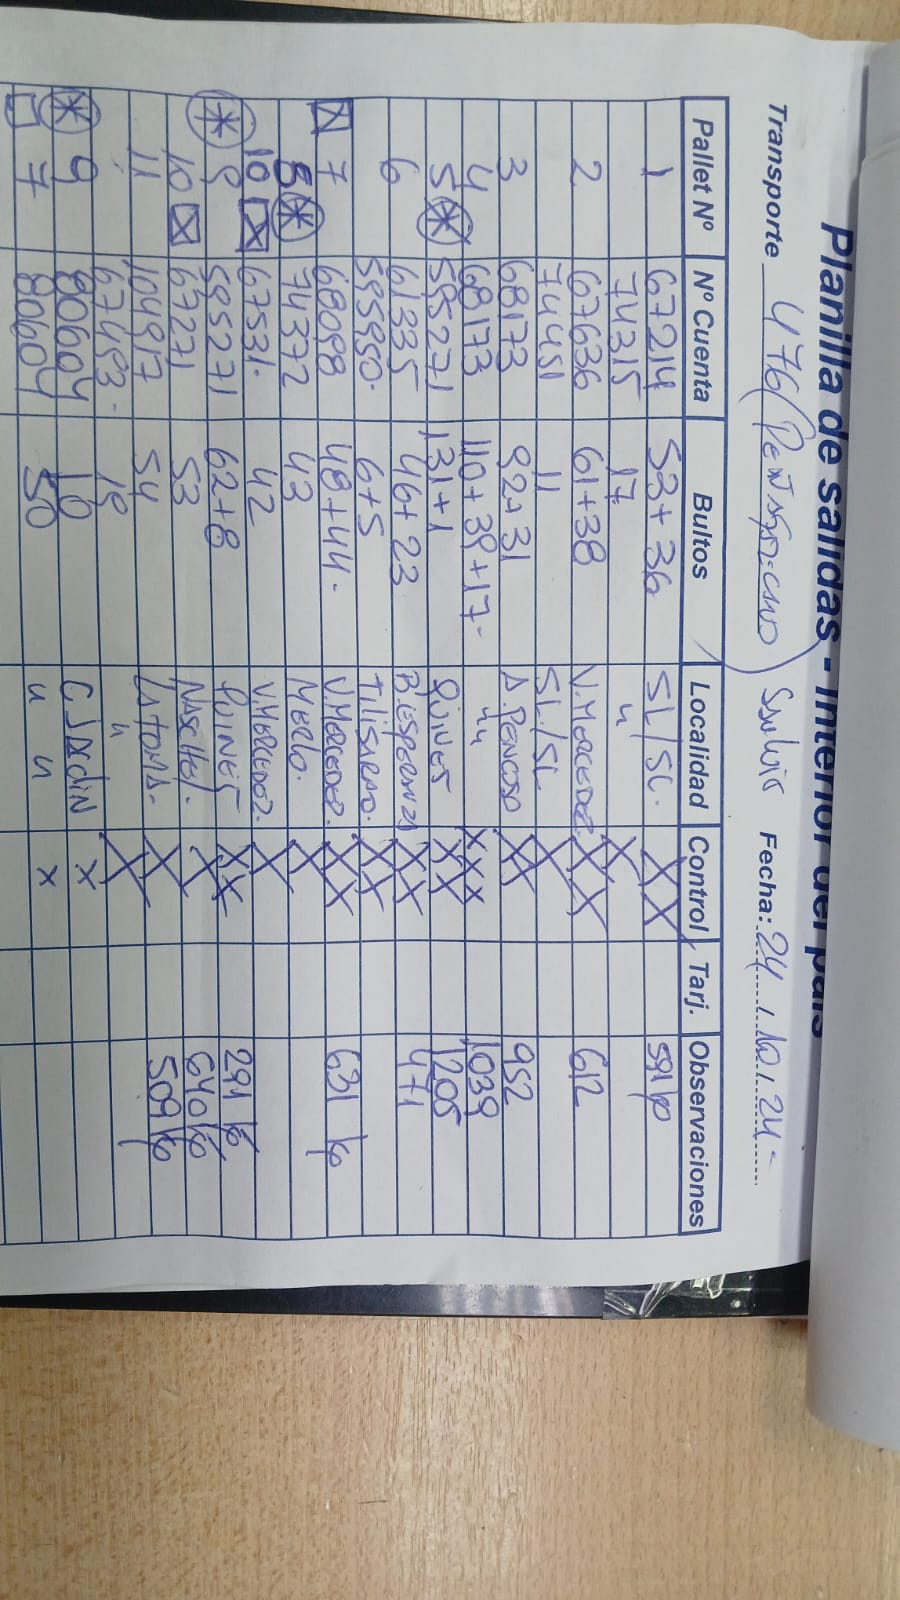 Planilla de salidas - Interior del país
Transporte 476 (PENTAGRO-CANO) San Luis Fecha: 24 / 10 / 24-
Pallet Nº Nº Cuenta Bultos Localidad Control Tarj. Observaciones
1 67214 53+36 SL/SL. XX 591 kg
74315 17 " X
2 67636 61+38 V.MERCEDEZ. XX 612
74451 11 SL./SL X
3 68173 92+31 A.PENCOSO XX 952
4 68173 110+39+17- " XXX 1039
5 595271 131+1 QUINES XX 1205
6 61335 46+23 B.ESPERANZA XX 471
595950- 6+5 TILISARAO. XX
7 68098 48+44- V.MERCEDEZ. XX 631 kg
5 74372 43 MERLO. X
10 67531- 42 V.MERCEDEZ. X
9 595271 62+8 QUINES XX 291 kg
10 67271 53 NASCHEL. X 640 kg
11 104917 54 LA TOMA- X 509 kg
67493- 19 " X
9 80604 10 C JARDIN X
7 80604 50 " " X